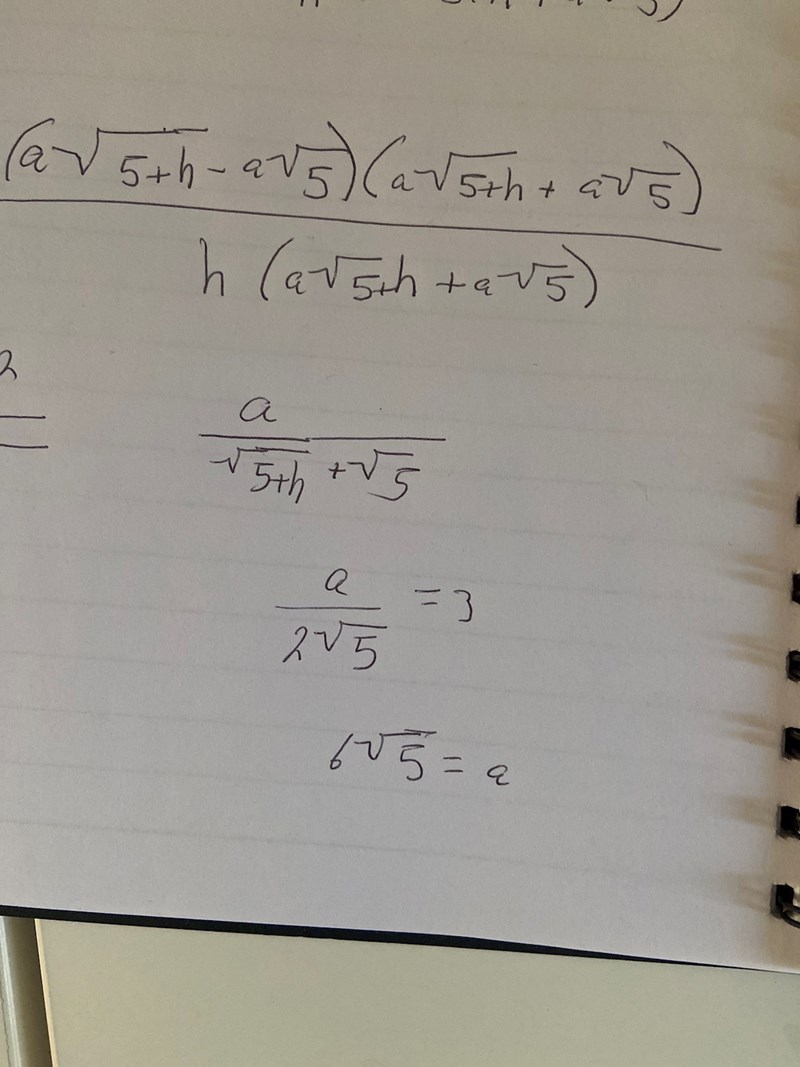 (a√5+h - a√5)(a√5+h + a√5)
h (a√5+h + a√5)
a
√5+h + √5
a
2√5
= 3
6√5 = a